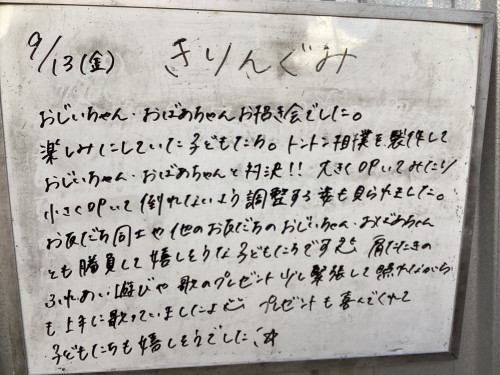 9/13(金) きりんぐみ
おじいちゃん・おばあちゃんお招き会でした。
楽しみにしていた子どもたち。トントン相撲を製作して
おじいちゃん・おばあちゃんと対決!! 大きく叩いてみたり
小さく叩いて倒れないよう調整する姿も見られました。
お友だち同士や他のお友だちのおじいちゃん・おばあちゃん
とも勝負して嬉しそうな子どもたちです 肩たたきの
ふれあい遊びや歌のプレゼント 少し緊張して照れながら
も上手に歌っていましたよ プレゼントも喜んでくれて
子どもたちも嬉しそうでした